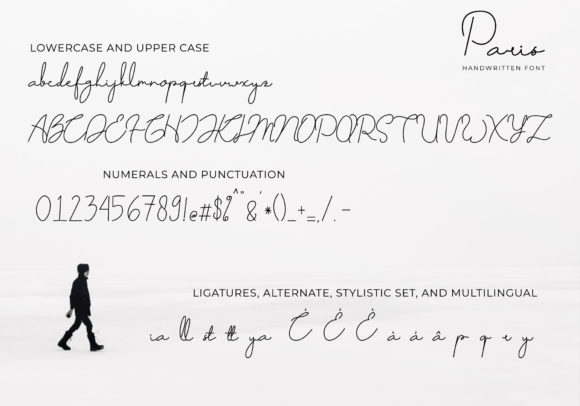 Paris
HANDWRITTEN FONT
LOWERCASE AND UPPER CASE
abcdefghijklmnopqrstuvwxyz
ABCDEFGHIJKLMNOPQRSTUVWXYZ
NUMERALS AND PUNCTUATION
0123456789!@#$%^&*()_+=,/.-
LIGATURES, ALTERNATE, STYLISTIC SET, AND MULTILINGUAL
ia ll st tt ya à á â p q r y